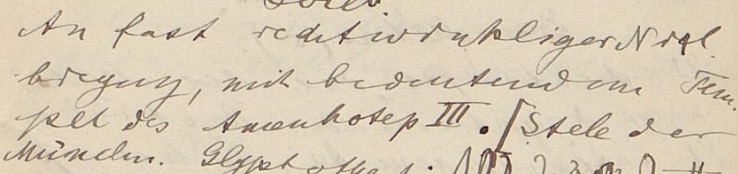 Soleb
An fast rechtwinkliger Nil
biegung, mit bedeutendem Tem-
pel des Amenhotep III. [Stele der
München. Glyptothek